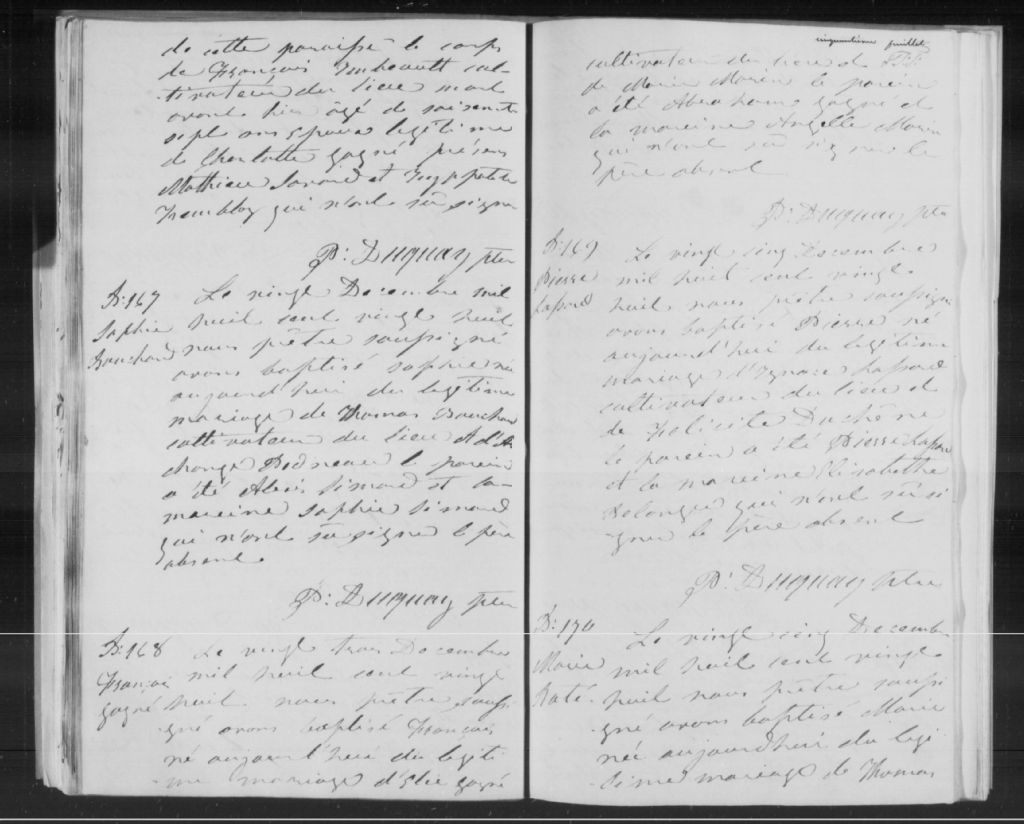 de cette paroisse le corps
de François Imbeault cul-
tivateur du lieu mort
avant hier âgé de soixante
sept ans epoux legitime
de Charlotte gagné présens
Mathieu Savard et Hyppolite
Tremblay qui n'ont sû signer
P: Duguay ptre
B: 167
Sophie
Bouchard
Le vingt Decembre mil
huit cent vingt huit
nous prêtre soussigné
avons baptisé sophie née
aujourd'hui du legitime
mariage de Thomas Bouchard
cultivateur du lieu & d'Ar
change Bodreau le parein
a été Alexis Simard et la
mareine Sophie Simard
qui n'ont sû signer le père
absent.
P: Duguay ptre
B: 168
François
gagné
Le vingt trois Decembre
mil huit cent vingt
huit nous prêtre soussi
gné avons baptisé François
né aujourd'hui du legiti
me mariage d'Elie gagné
cinquantième feuillet
cultivateur du lieu et
de Marie Morin le parein
a été Abraham gagné et
la mareine Angelle Morin
qui n'ont sû signer le
père absent
P: Duguay ptre
B: 169
Pierre
Lassard
Le vingt cinq Decembre
mil huit cent vingt
huit nous prêtre soussigné
avons baptisé Pierre né
aujourd'hui du legitime
mariage d'Ignace Lassard
cultivateur du lieu et
de Felicité Duchêne
le parein a été Pierre Lassard
et la mareine Elisabethe
Delonger qui n'ont sû si
gner le père absent
P: Duguay ptre
B: 170
Marie
Raté
Le vingt cinq Decembre
mil huit cent vingt
huit nous prêtre soussi
gné avons baptisé Marie
née aujourd'hui du legi
time mariage de Thomas